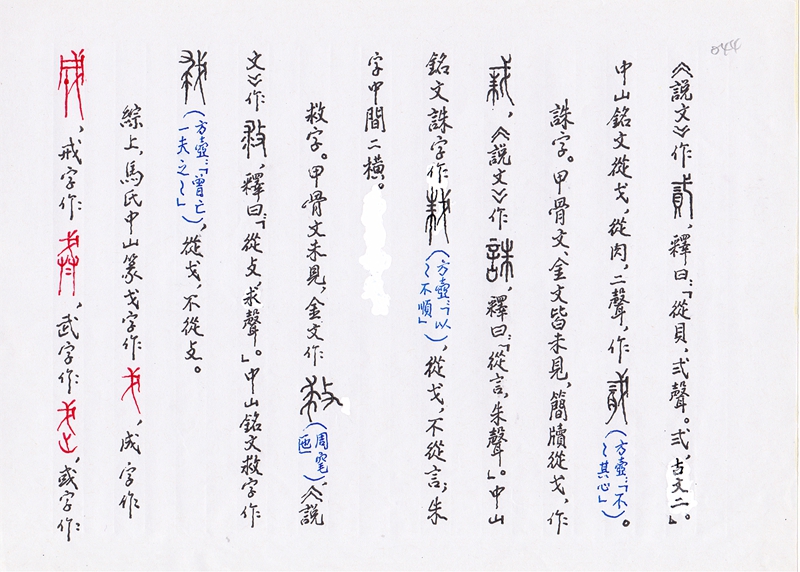 《說文》作，釋曰：「從貝，弍聲。弍，古文二。」
中山銘文從戈，從肉，二聲，作（方壺：「不〻其心」）。
誅字。甲骨文、金文皆未見，簡牘從戈，作
，《說文》作，釋曰：「從言，朱聲」。中山
銘文誅字作（方壺：「以〻不順」），從戈，不從言；朱
字中間二橫。
救字。甲骨文未見，金文作（周），《說
文》作，釋曰：「從攴，求聲」。中山銘文救字作
（方壺：「曾亡一夫之〻」），從戈，不從攴。
綜上，馬氏中山篆戈字作，成字作
，戒字作，武字作，或字作